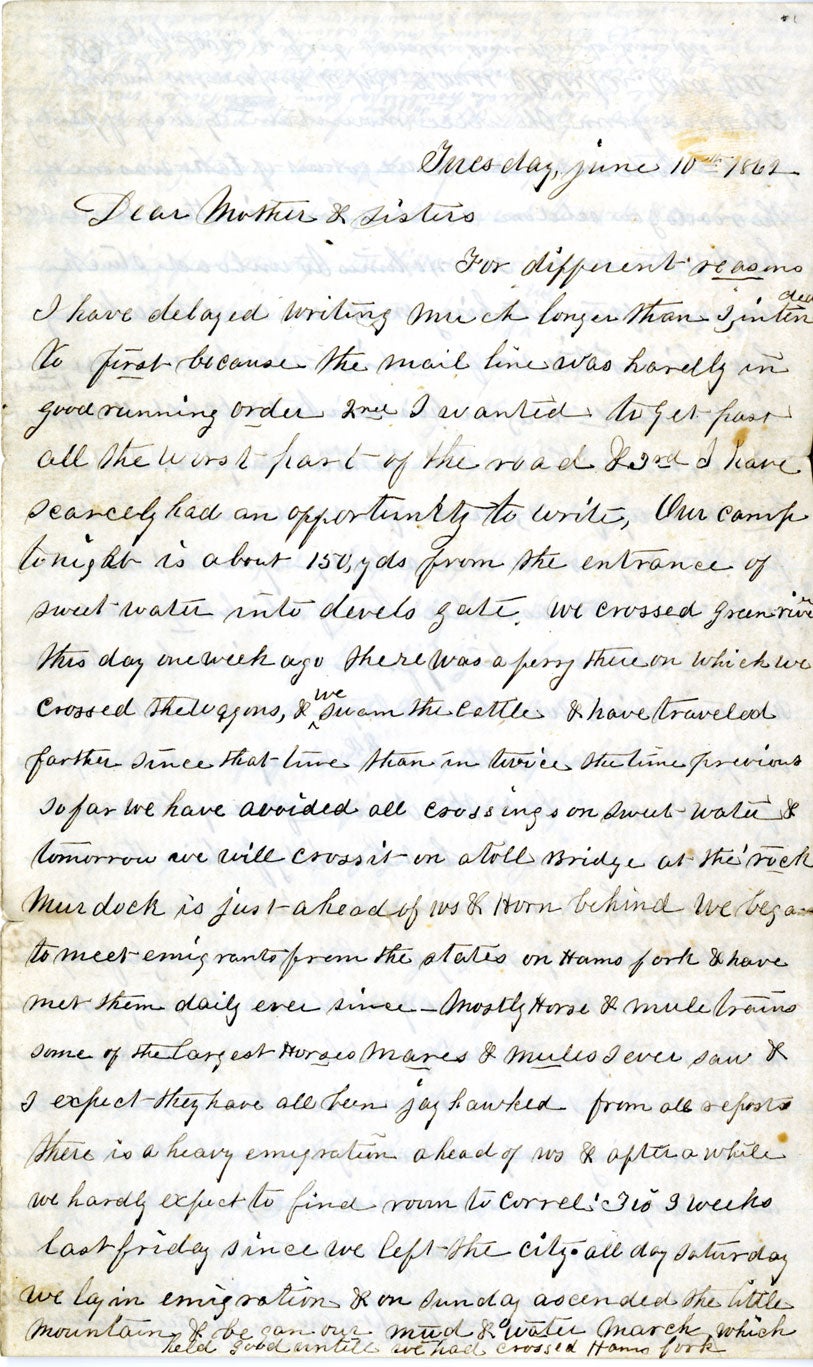 Tuesday, june 10th 1862
Dear Mother & sisters
For different reasons
I have delayed writing much longer than I intended
to first because the mail line was hardly in
good running order 2nd I wanted to get past
all the worst part of the road & 3rd I have
scarcely had an opportunity to write, Our camp
tonight is about 150, yds from the entrance of
sweet water into devels gate. We crossed green river
this day one week ago there was a ferry there on which we
crossed the wagons, & we swam the cattle & have traveled
farther since that time than in twice the time previous
so far we have avoided all crossings on sweet water &
tomorrow we will cross it on a toll Bridge at the rock
Murdock is just ahead of us & Horn behind We began
to meet emigrants from the states on Hams fork & have
met them daily ever since - Mostly Horse & mule trains
some of the largest Horses Mares & mules I ever saw &
I expect they have all been jay hawked from all reports
there is a heavy emigration ahead of us & after a while
we hardly expect to find room to correl. Tis 3 weeks
last friday since we left the city. all day saturday
we lay in emigration & on sunday ascended the little
mountain & began our mud & water March which
held good untill we had crossed Hams fork